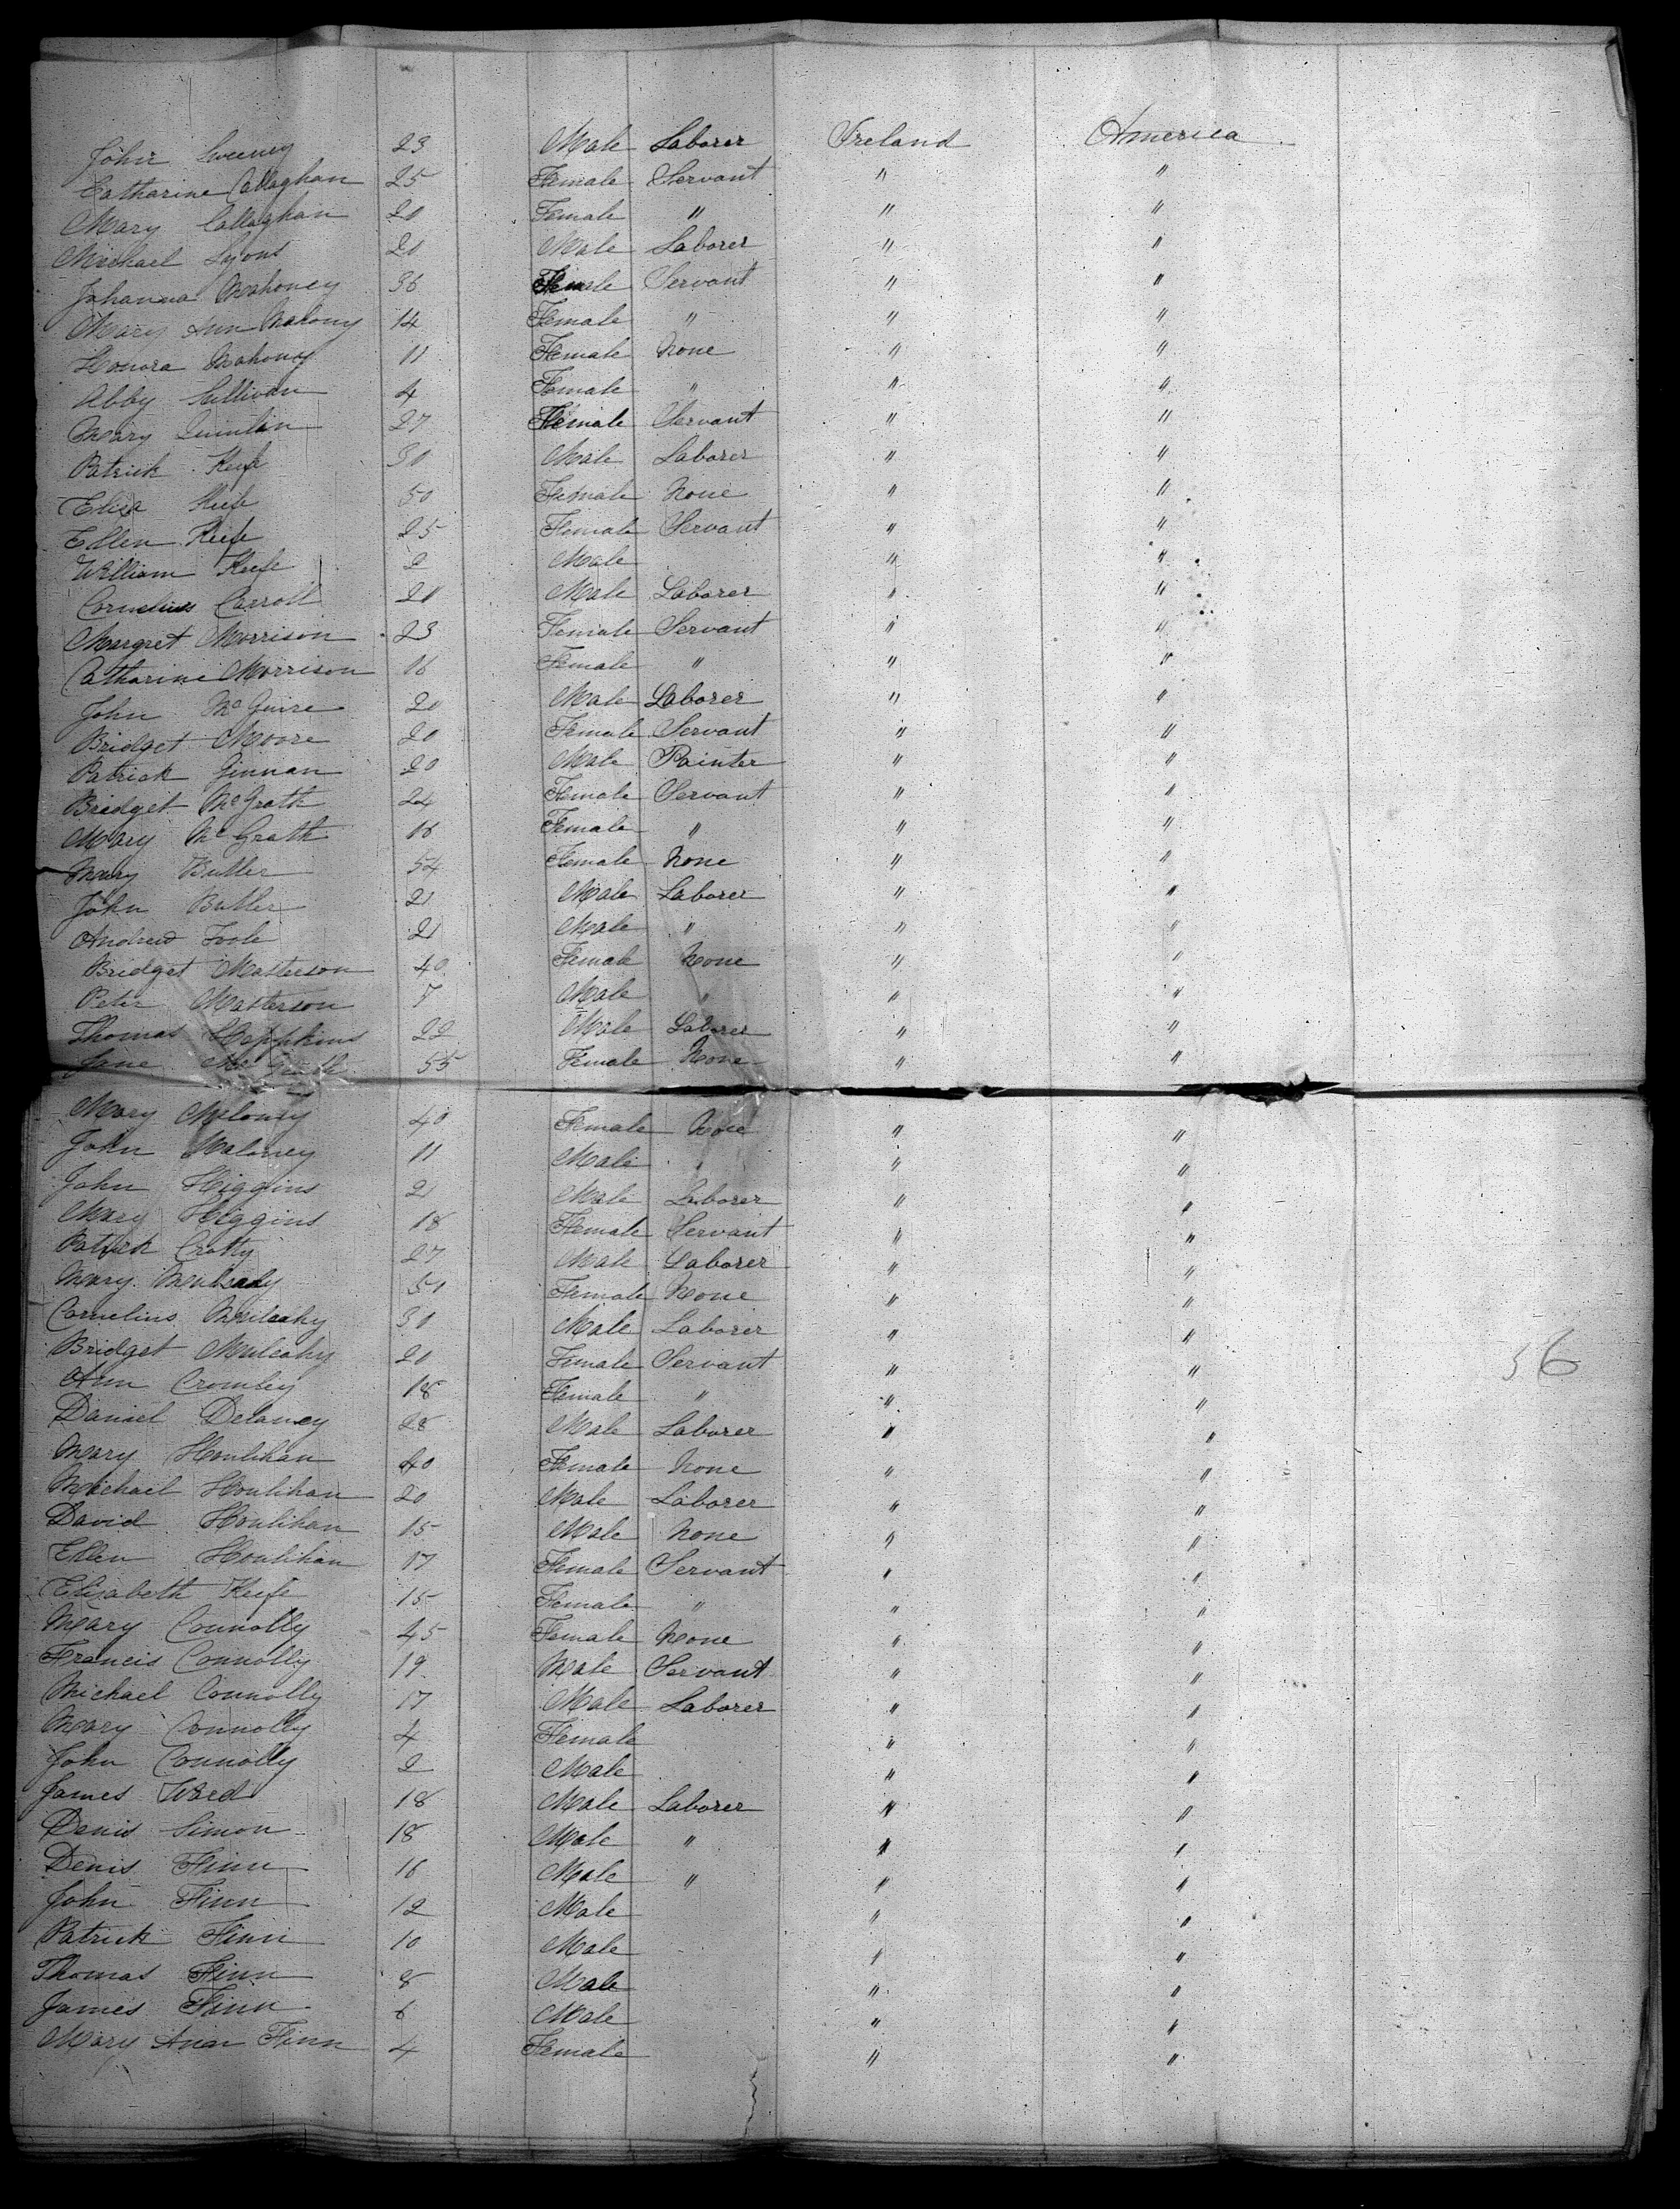 John Sweeney 23 Male Laborer Ireland America
Catharine Callaghan 25 Female Servant " "
Mary Callaghan 20 Female " " "
Michael Lyons 20 Male Laborer " "
Johanna Mahoney 36 Female Servant " "
Mary Ann Mahony 14 Female " " "
Honora Mahony 11 Female None " "
Abby Sullivan 4 Female " " "
Mary Quinlan 27 Female Servant " "
Patrick Keefe 30 Male Laborer " "
Eliza Keefe 50 Female None " "
Ellen Keefe 25 Female Servant " "
William Keefe 2 Male " "
Cornelius Carroll 20 Male Laborer " "
Margret Morrison 23 Female Servant " "
Catharine Morrison 16 Female " " "
John McGuire 20 Male Laborer " "
Bridget Moore 20 Female Servant " "
Patrick Ginnan 20 Male Painter " "
Bridget McGrath 24 Female Servant " "
Mary McGrath 16 Female " " "
Mary Butler 54 Female None " "
John Butler 21 Male Laborer " "
Andrew Toole 21 Male " " "
Bridget Masterson 40 Female None " "
Peter Masterson 7 Male " " "
Thomas Hoppkins 22 Male Laborer " "
Jane 55 Female None " "
Mary Meloney 40 Female None " "
John Maloney 11 Male " " "
John Higgins 21 Male Laborer " "
Mary Higgins 18 Female Servant " "
Patrick Crotty 27 Male Laborer " "
Mary 50 Female None " "
Cornelius Mulcahy 30 Male Laborer " "
Bridget Mulcahy 20 Female Servant " "
Ann Cromley 18 Female " " "
Daniel Delaney 28 Male Laborer " "
Mary Houlihan 40 Female None " "
Michael Houlihan 20 Male Laborer " "
David Houlihan 15 Male None " "
Ellen Houlihan 17 Female Servant " "
Elisabeth Keefe 15 Female " " "
Mary Connolly 45 Female None " "
Francis Connolly 19 Male Servant " "
Michael Connolly 17 Male Laborer " "
Mary Connolly 4 Female " "
John Connolly 2 Male " "
James Ward 18 Male Laborer " "
Denis Simon 18 Male " " "
Denis Flinn 16 Male " " "
John Flinn 12 Male " "
Patrick Flinn 10 Male " "
Thomas Flinn 8 Male " "
James Flinn 6 Male " "
Mary Ann Flinn 4 Female " "
56